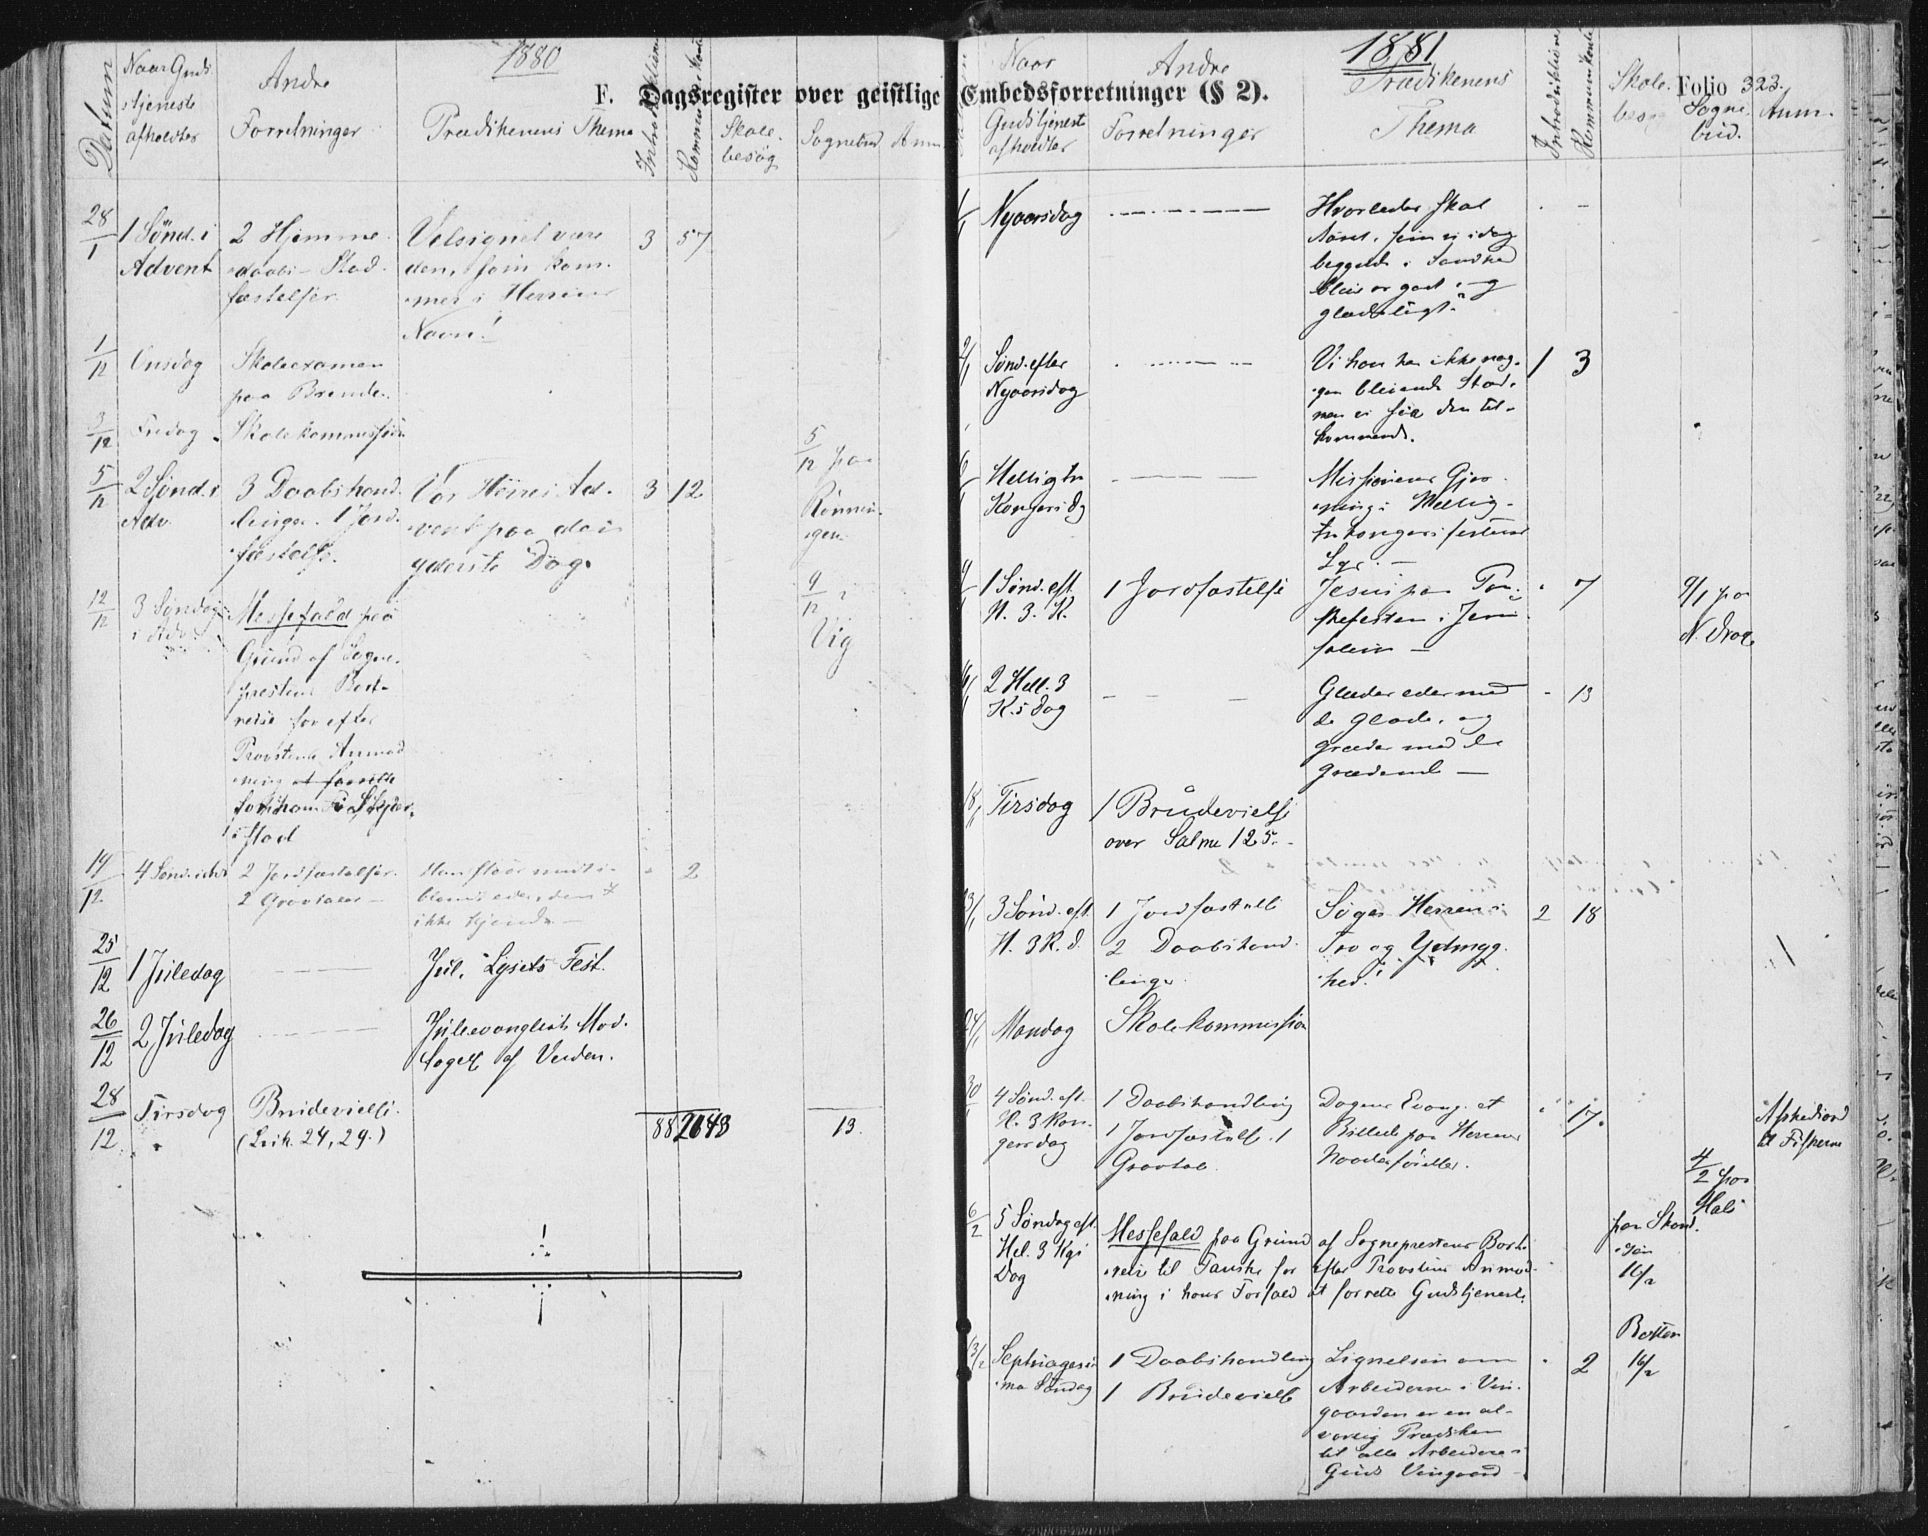 1880
F. Dagsregister over geistlige
Datum
Naar Guds
tjeneste
afholdtes
Andre
Forretninger
Prædikenens Thema
Introduktion
Kommunikanter
Skole
besøg
Sognebud
Anm
28/1
1 Sønd. i
Advent
2 Hjemme
daabs-Stad
fæstelser
Velsignet være
den, som kom
mer i Herrens
Navn!
3
57
1/12
Onsdag
Skoleexamen
paa Brende
3/12
Fredag
Skolekommission
5/12
2 Sønd. i
Adv.
3 Daabshand
linger. 1 Jord
fæstelse.
Vor Herres Ad-
vent paa den
yderste Dag.
3
12
5/12 paa
Rønnin-
gen
12/12
3 Søndag
i Adv.
Messefald paa
Grund af Sogne-
prestens Bort-
reise for efter
Provstens Anmod
ning at forrette
for ham i Skjer-
stad
9/12 i
Vig
19/12
4 Sønd. i Adv
2 Jordfæstelser
2 Gravtaler
Han staar midt i-
blandt eder, den I
ikke kjende
2
25/12
1 Juledag
Jul, Lysets Fest.
26/12
2 Juledag
Juleevangliets Mod-
tagelse af Verden.
28/12
Tirsdag
Brudevielse
(Luk. 24, 29.)
88
2648
13
1881
Embedsforretninger (§ 2).
Folio 323.
Naar
Gudstjeneste
afholdtes
Andre
Forretninger
Prædikenens
Thema
Introduktion
Kommunikanter
Skole-
besøg
Sogne-
bud.
Anm.
1/1
Nyaarsdag
Hvorledes skal
Aaret, som vi idag
begynde i Sandhed
blive os godt og
glædeligt?
2/1
Sønd. efter
Nyaarsdag
Vi have her ikke nog-
gen blivende Stad,
men vi søge den til-
kommende.
1
3
6/1
Hellig tre
Kongers Dg
Missionens Gjer-
ning i Hellig-
trekongersfestens
Lys.
9/1
1 Sønd. eft.
H. 3. K.
1 Jordfæstelse
Jesus paa Paa-
skefesten i Jeru-
salem
7
9/1 paa
16/1
2 Hell. 3
K.s Dag
Glæder eder med
de Glade, og
græder med de
Grædende
13
18/1
Tirsdag
1 Brudevielse
over Salme 125.
23/1
3 Sønd. eft.
H. 3 K. d.
1 Jordfæstelse
2 Daabshand-
linger
Søger Herren i
Tro og Ydmyg-
hed!
2
18
24/1
Mandag
Skolekommission
30/1
4 Sønd. eft.
H. 3 Kon-
gersdag
1 Daabshandling
1 Jordfæstelse. 1
Gravtale
Dagens Evang. et
Billede paa Herrens
Naades
17.
til
4/2 paa
Hals
6/2
5 Søndag eft.
Hel. 3 Kgs
Dag
Messefald paa Grund af Sogneprestens Bort-
reise til Fauske for efter Provstens Anmod-
ning i hans Forfald at forrette Gudstjeneste
paa
16/2
13/2
Septuagesi-
ma Søndag
1 Daabshandling
1 Brudevielse
Lignelsen om
Arbeiderne i Vin-
gaarden er en al-
vorlig Prædiken
til alle Arbeidere i
Guds Vingaard
2
16/2